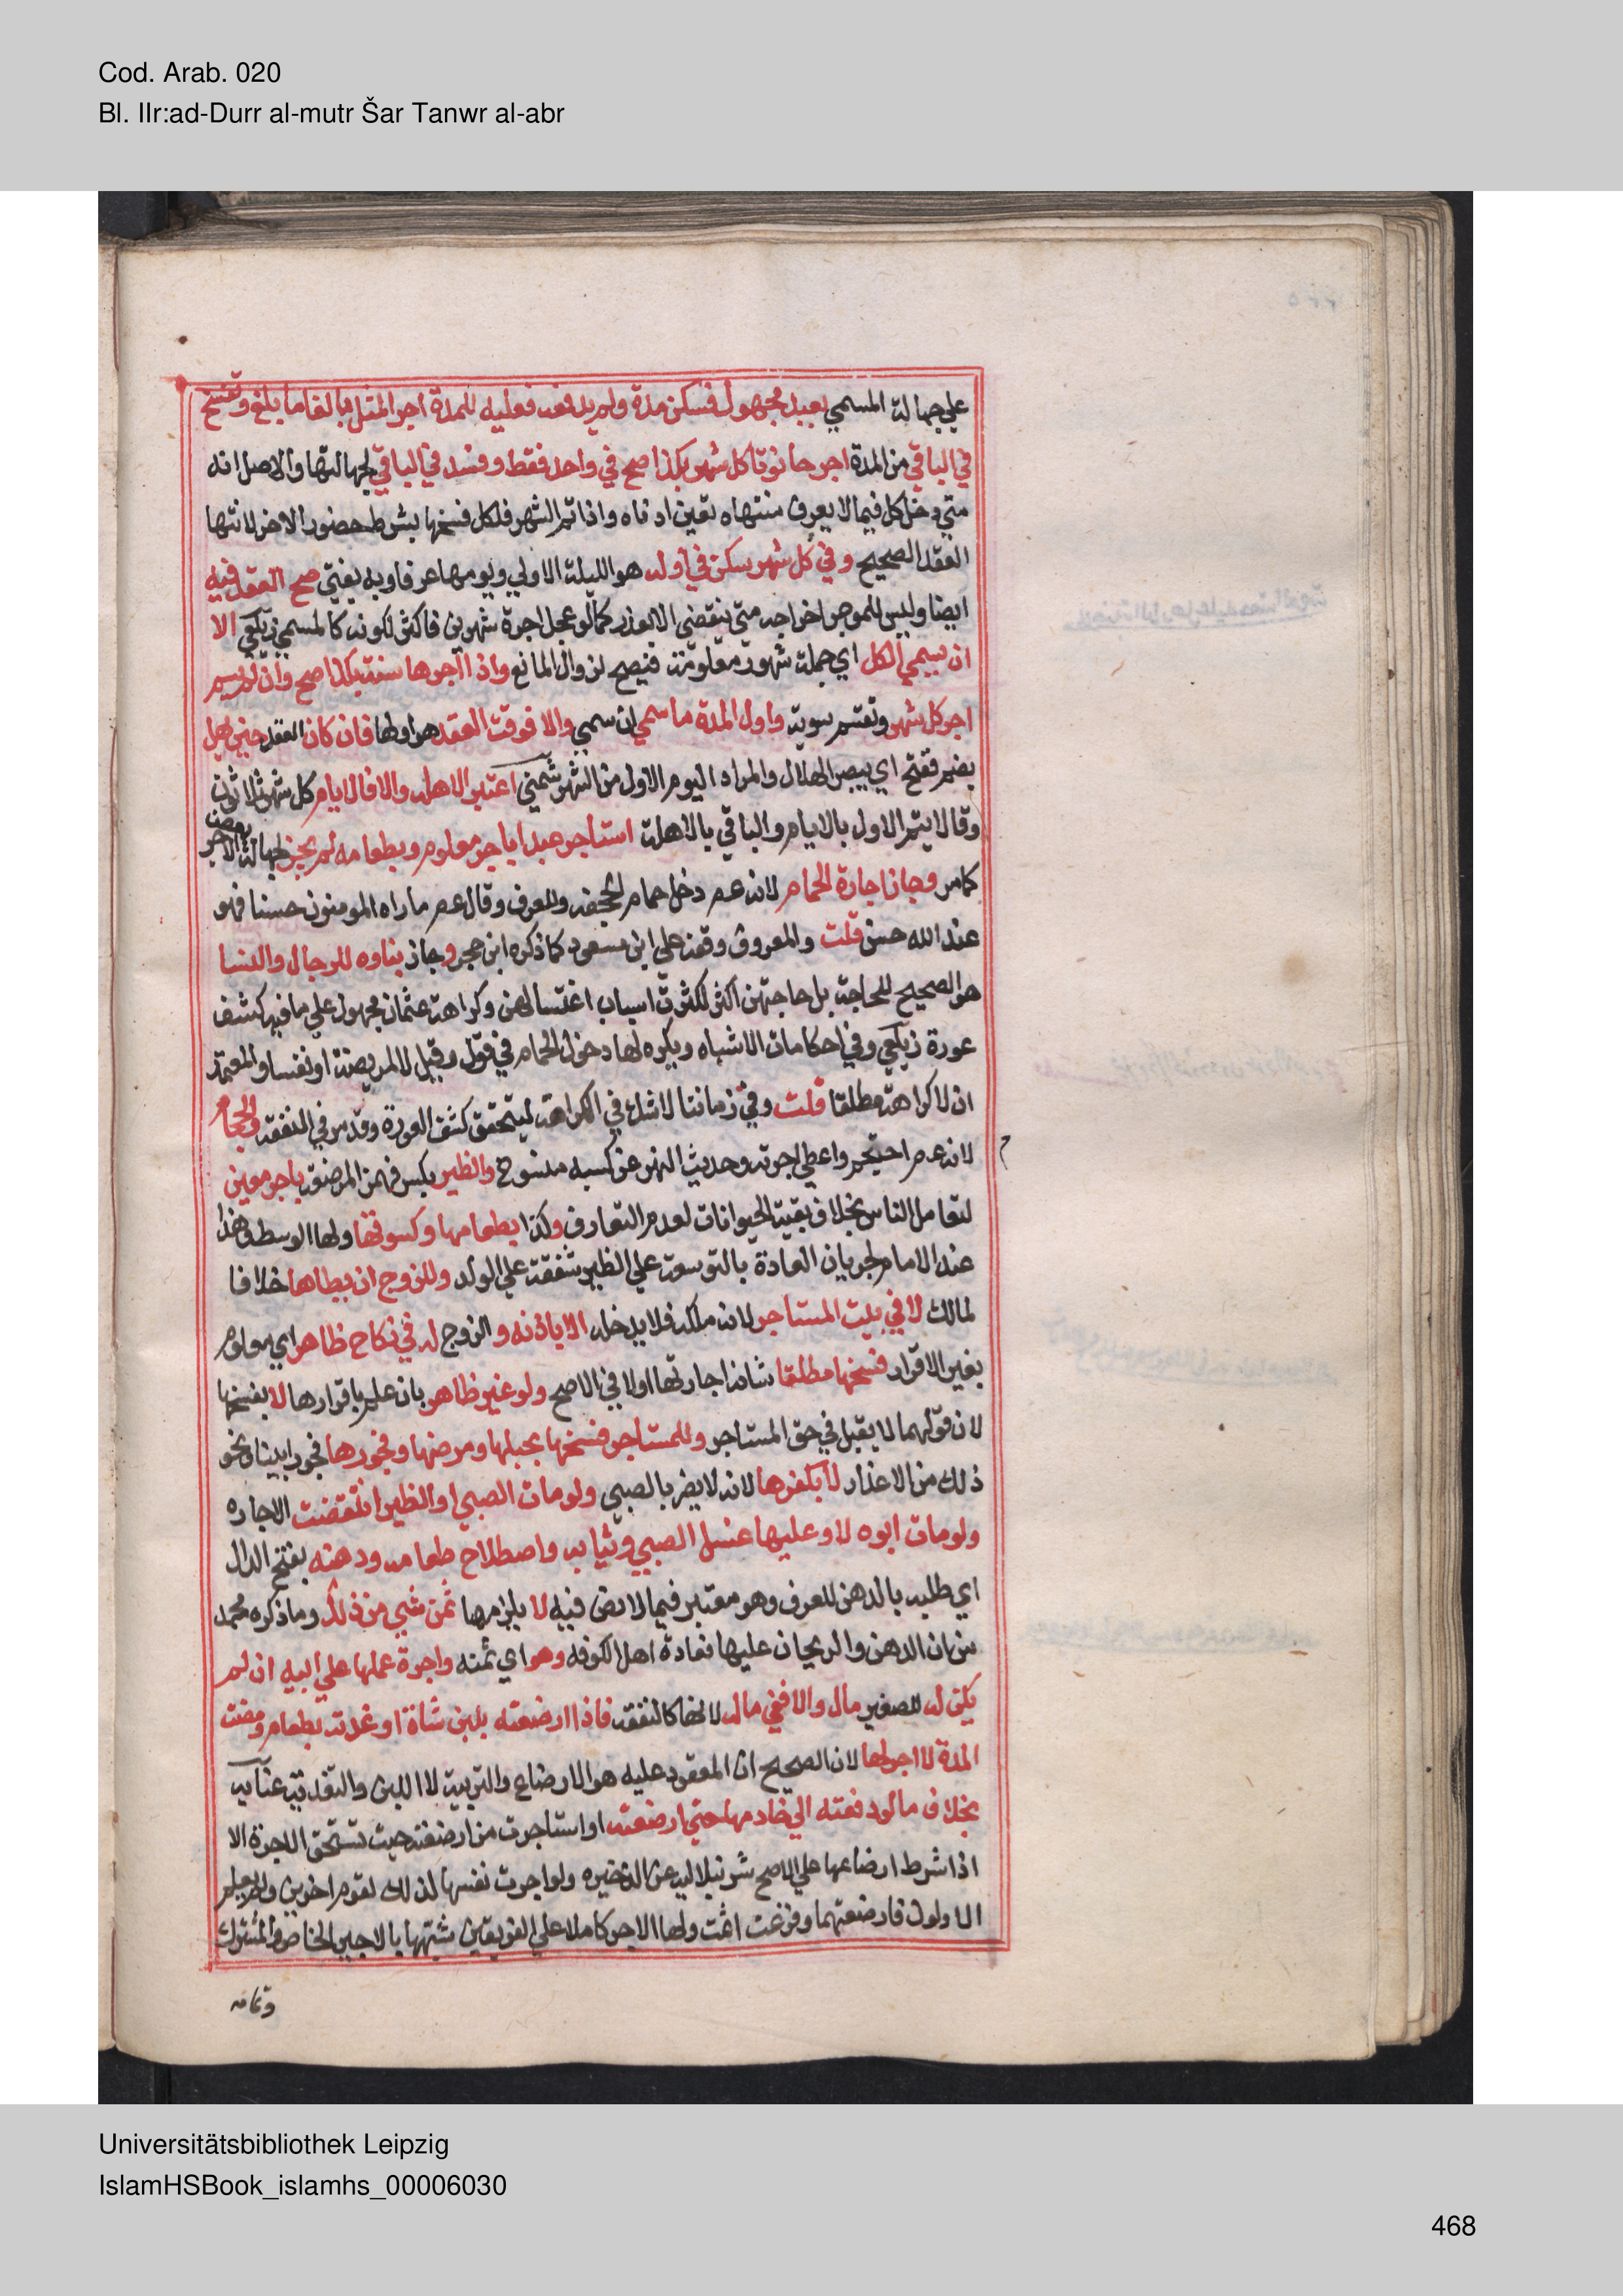 Cod. Arab. 020
Bl. IIr:ad-Durr al-mutr Šar Tanwr al-abr
علي جهالة المسمي بعبد مجهول فسكن مدة ولم يدفعه فعليه للمدة اجر المثل بالغا ما بلغ وتفسخ
في الباقي من المدة اجر حانوتا كل شهر بكذا صح في واحد فقط وفسد في الباقي لجهالتها والاصل انه
متي دخل كل فيما لا يعرف منتهاه تعين ادناه واذا تم الشهر فلكل فسخها بشرط حضور الاخر لانتها
العقد الصحيح وفي كل شهر سكن في اوله هو الليلة الاولي ويومها عرفا وبه يفتي صح العقد فيه
ايضا وليس للموجر اخراجه متي ينقضي الا بعذر كما لو عجل اجرة شهرين فاكثر لكونه كالمسمي زيلعي الا
ان يسمي الكل اي جملة شهور معلومة فيصح لزوال المانع واذا اجرها سنة بكذا صح وان لم يسم
اجر كل شهر وتقسم سوية واول المدة ما سمي ان سمي والا فوقت العقد هو اولها فان كان العقد حين يهل
بضم ففتح اي يبصر الهلال والمراد اليوم الاول من الشهر شمني اعتبر الاهلة والا فالايام كل شهر ثلاثون
وقالا يتم الاول بالايام والباقي بالاهلة استاجر عبدا باجر معلوم وبطعامه لم يجز لجهالة بعض الاجر
كامر وجاز اجارة الحمام لانه عم دخل حمام الجحفة وللعرف وقال عم ماراه المومنون حسنا فهو
عند الله حسن قلت والمعروف وقفه علي ابن مسعود كما ذكره ابن حجر وجاز بناوه للرجال والنسا
هو الصحيح للحاجة بل حاجتهن اكثر لكثرة اسباب اغتسالهن وكراهة عثمان مجهول علي ما فيه كشف
عورة زيلعي وفي احكامات الاشباه ويكره لها دخول الحمام في قول وقيل لا لمريضة او نفسا والمعتمد
ان لا كراهة مطلقا قلت وفي زماننا لا شك في الكراهة ليتحقق كشف العورة وقد مر في النفقة والحجام
لانه عم احتجم واعطي اجرته وحديث النهي عن كسبه منسوخ والظير بكسر فهمز المرضعة باجر معين
لتعامل الناس بخلاف بقية الحيوانات لعدم التعارف وكذا بطعامها وكسوتها ولها الوسط وهذا
عند الامام لجريان العادة بالتوسعة علي الظير شفقة علي الولد وللزوج ان يطاها خلافا
لمالك لا في بيت المستاجر لانه ملكه فلا يدخله الا باذنه والزوج له في نكاح ظاهر اي معلوم
بغير الاقرار فسخها مطلقا شانه اجارتها اولا في الاصح ولو غير ظاهر بان علم باقرارها لا يفسخها
لان قولهما لا يقبل في حق المستاجر وللمستاجر فسخها بحبلها ومرضها وفجورها فجورا بينا ونحو
ذلك من الاعذار لا بكفرها لانه لا يضر بالصبي ولو مات الصبي او الظير انتقضت الاجاره
ولو مات ابوه لا وعليها غسل الصبي وثيابه واصطلاح طعامه ودهنه بفتح الدال
اي طليه بالدهن للعرف وهو معتبر فيما لا نص فيه لا يلزمها ثمن شي من ذلك وما ذكره محمد
من ان الدهن والريحان عليها فعادة اهل الكوفه وهو اي ثمنه واجرة عملها علي ابيه ان لم
يكن له للصغير مال والا ففي ماله لانها كالنفقة فاذا ارضعته بلبن شاة او غدته بطعام ومضت
المدة لا اجر لها لان الصحيح ان المعقود عليه هو الارضاع والتربية لا اللبن والتغدية عناية
بخلاف ما لو دفعته الي خادمها حتي ارضعته او استاجرت من ارضعته حيث تستحق الاجرة الا
اذا شرط ارضاعها علي الاصح شرنبلاليه عن الذخيره ولو اجرت نفسها لذلك لقوم اخرين ولم يعلم
الاولون فارضعتهما وفرغت اثمت ولها الاجر كاملا علي الفريقين شبهها بالاجير الخاص والمشترك
وتمامه
Universitätsbibliothek Leipzig
IslamHSBook_islamhs_00006030
468